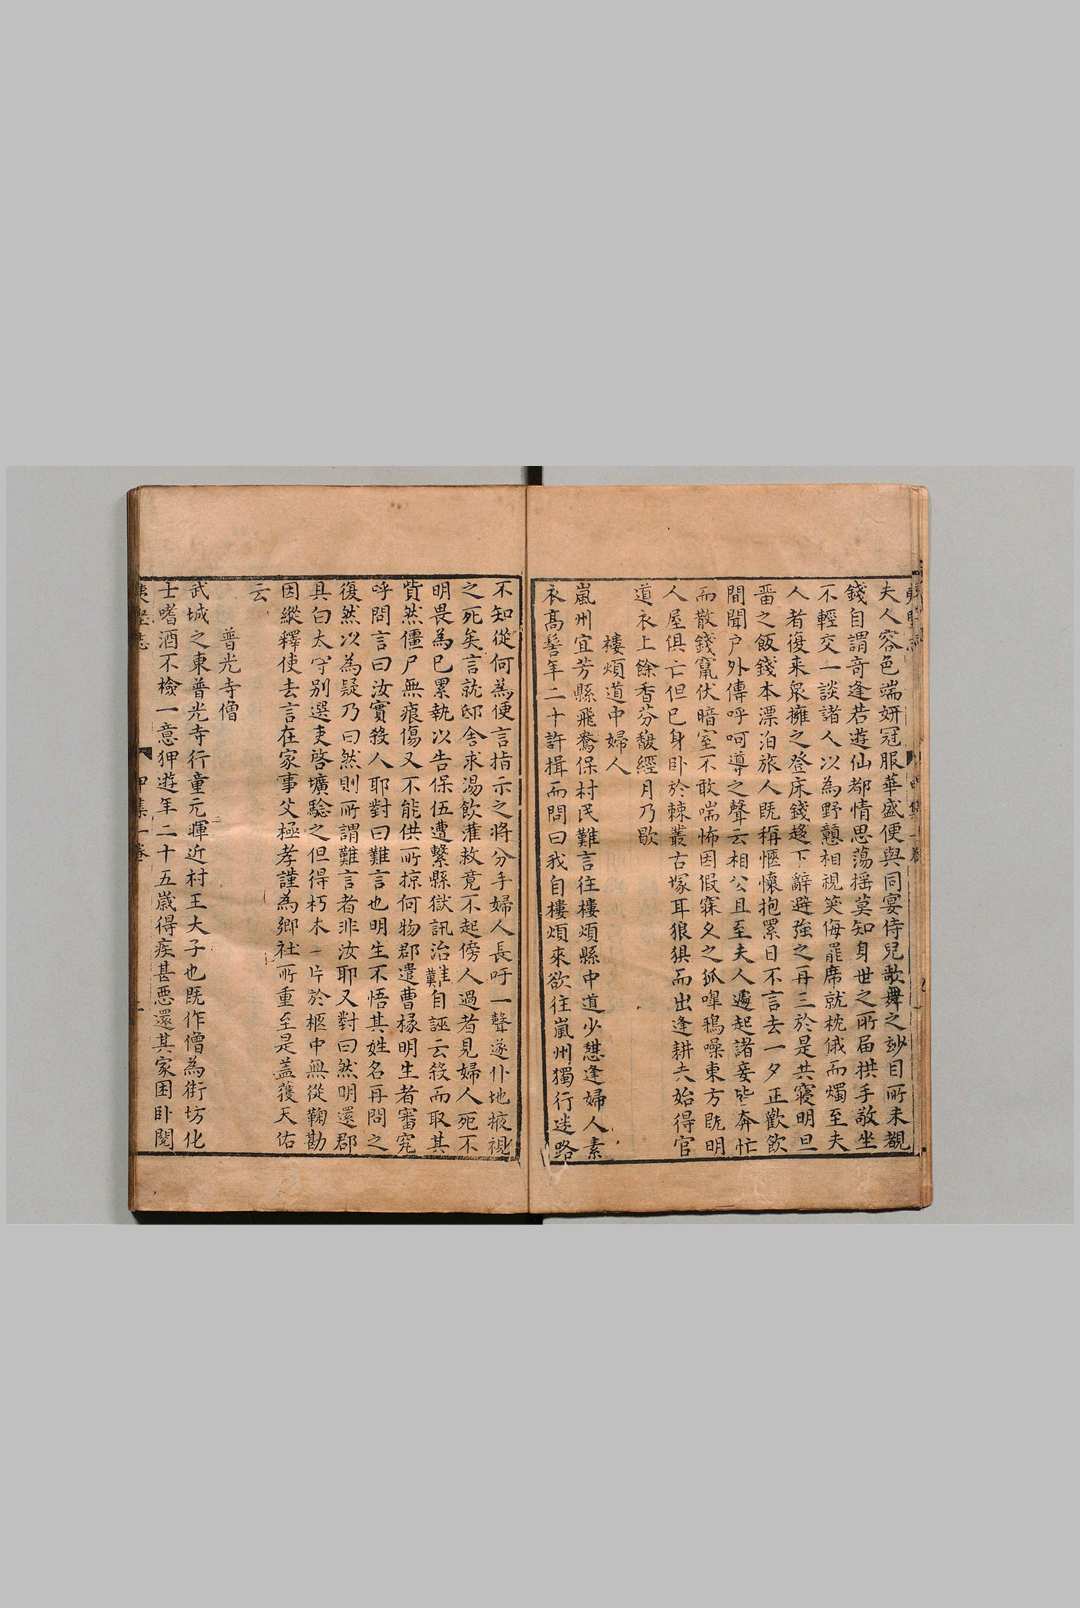 夫人容色端妍冠服華盛便與同宴侍兒歌舞之妙目所未覩
錢自謂奇逢若遊仙都情思蕩揺莫知身世之所届拱手敬坐
不輕交一談諸人以為野戇相視笑侮罷席就枕俄而燭至夫
人者復来衆擁之登床錢趍下辭避強之再三於是共寢明旦
畱之飯錢本漂泊旅人既稱愜懷抱累日不言去一夕正歡飲
間聞戶外傳呼呵導之聲云相公且至夫人遽起諸妾皆奔忙
而散錢竄伏暗室不敢喘怖因假寐夕之狐嘷鵶噪東方既明
人屋俱亡但已身卧於棘叢古塚耳狼狽而出逢耕夫始得官
道衣上餘香芬馥經月乃歇
樓煩道中婦人
嵐州宜芳縣飛鳶保村民難言往樓煩縣中道少憇逢婦人素
衣髙髻年二十許揖而問曰我自樓煩來欲往嵐州獨行迷路
不知從何為便言指示之將分手婦人長吁一聲遂仆地掖視
之死矣言就邸舍求湯飲灌救竟不起傍人過者見婦人死不
明畏為已累執以告保伍遭繫縣獄訊治難自誣云殺而取其
貲然僵尸無痕傷又不能供所掠何物郡遣曹椽明生者審究
呼問言曰汝實殺人耶對曰難言也明生不悟其姓名再問之
復然以為疑乃曰然則所謂難言者非汝耶又對曰然明還郡
具白太守别選吏啓壙驗之但得朽木一片於柩中無從鞠勘
因縱釋使去言在家事父極孝謹為鄉社所重至是蓋獲天佑
云
普光寺僧
武城之東普光寺行童元暉近村王大子也既作僧為街坊化
士嗜酒不檢一意狎遊年二十五歲得疾甚惡還其家困卧閱
夷堅志
甲集一卷